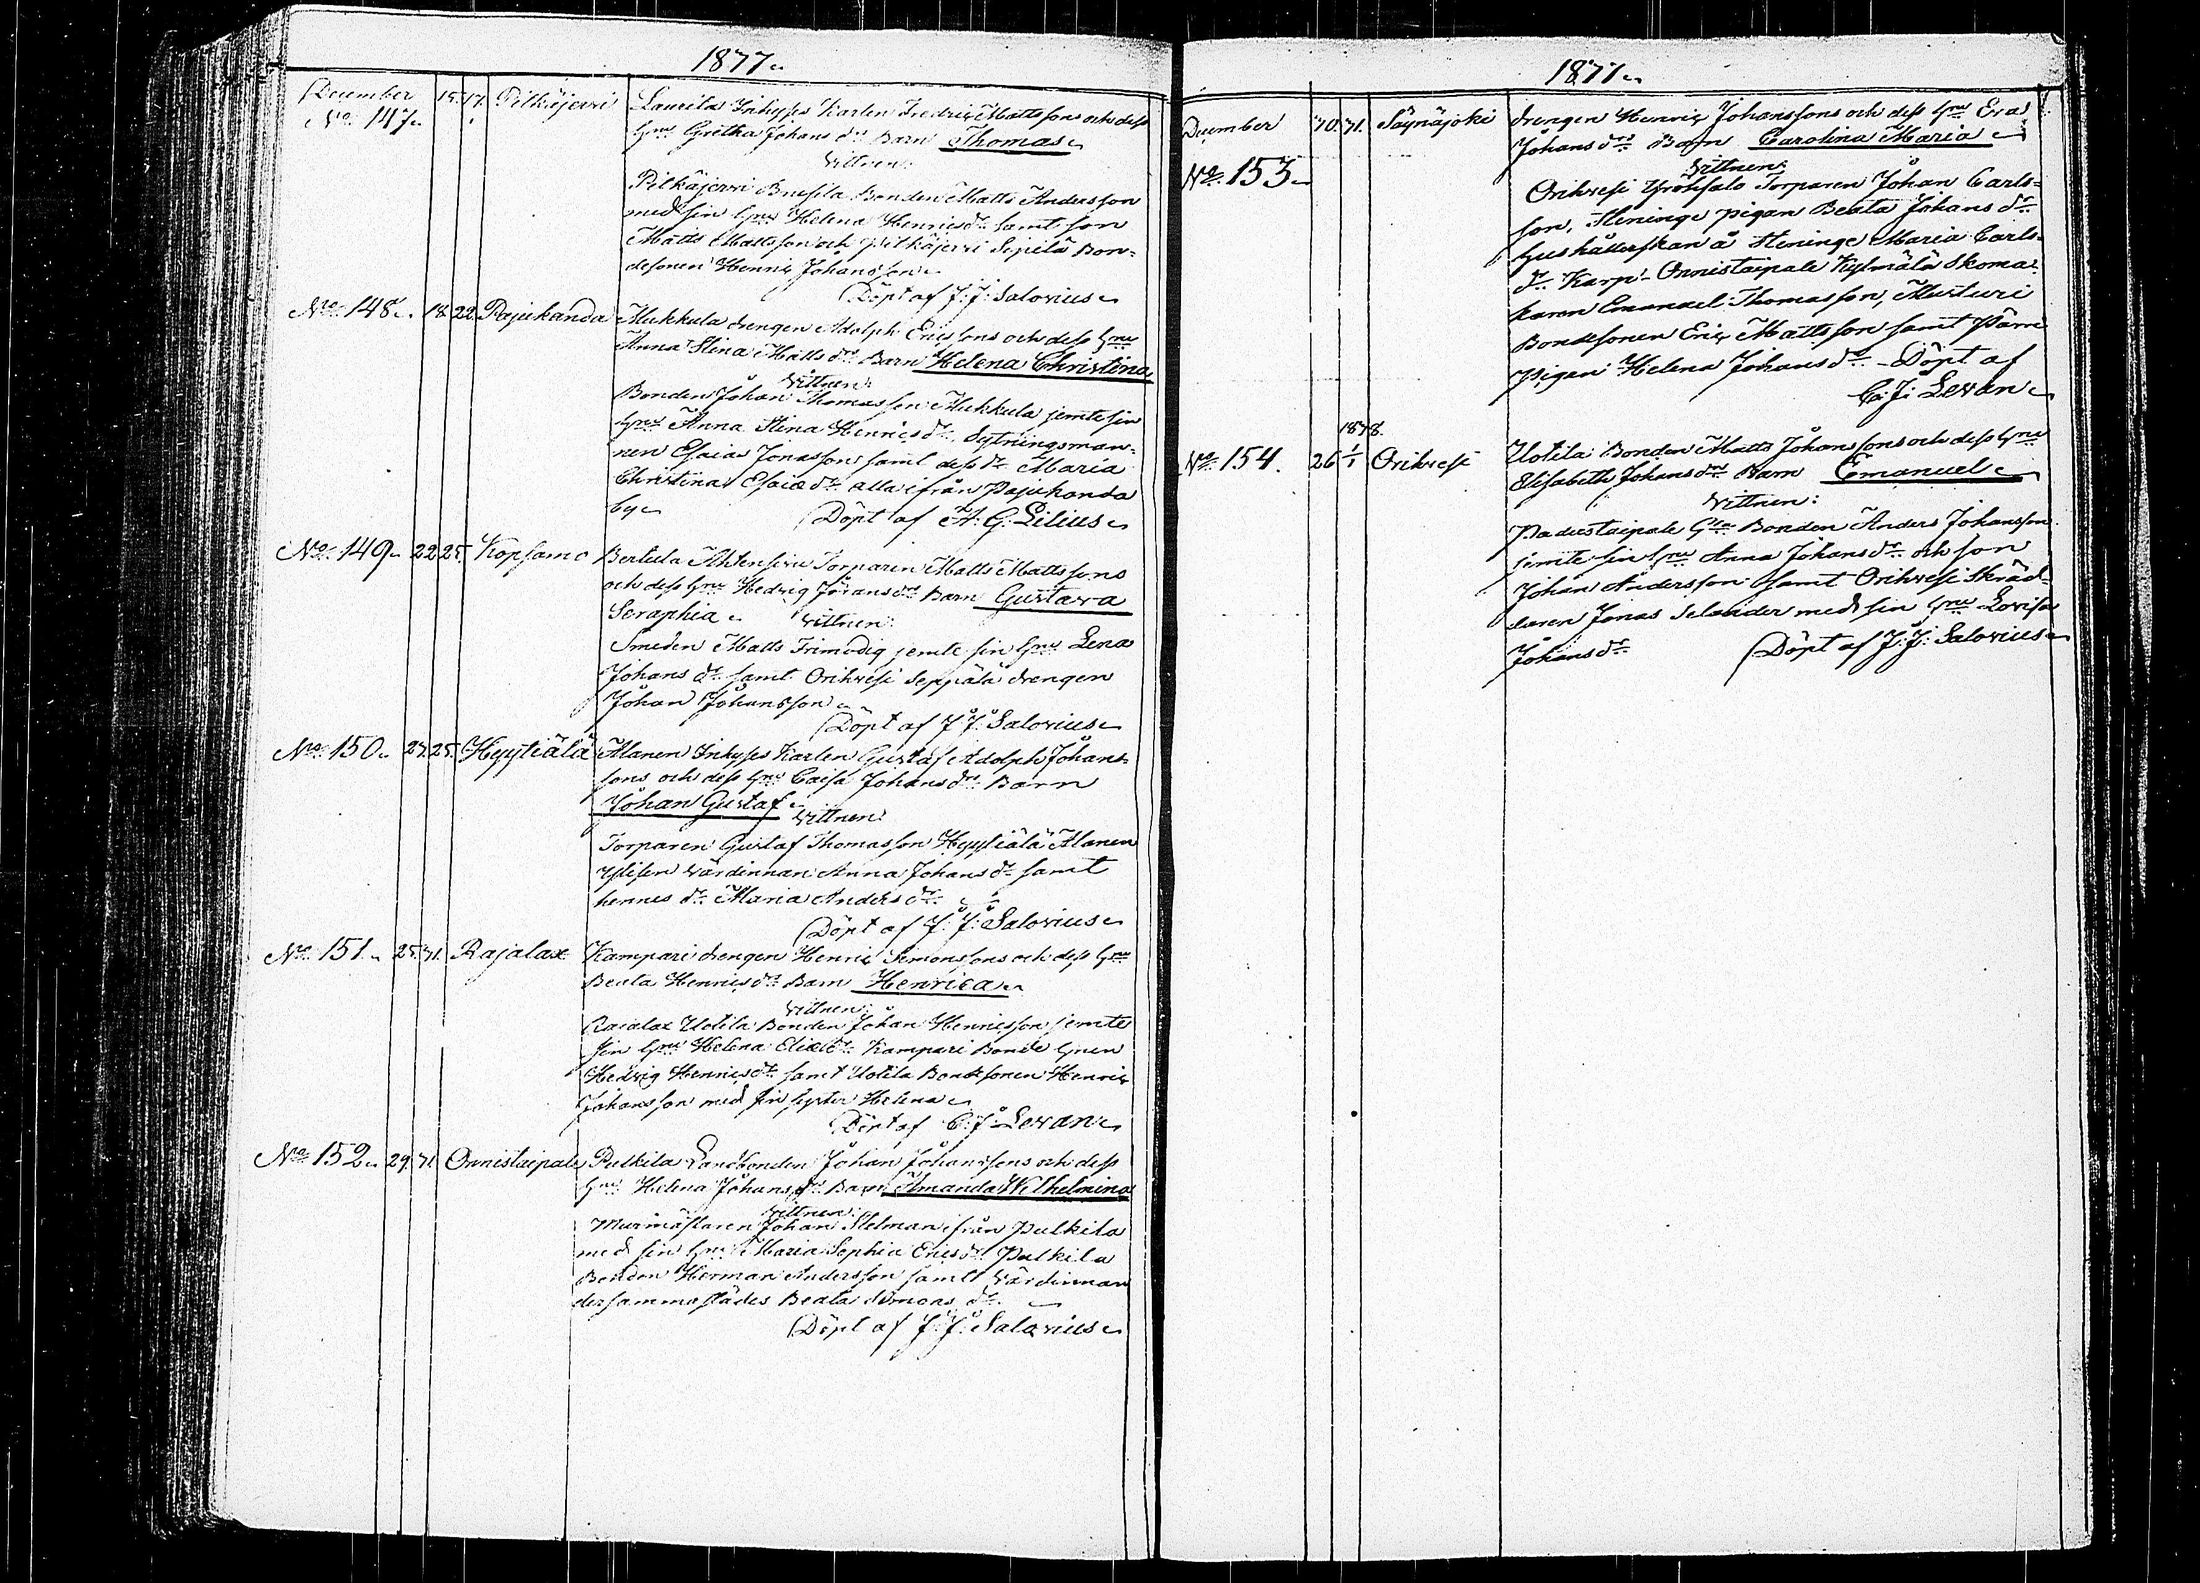 1877
December 15. 17. Pitkäjervi Laurila Inhyses Karlen Fredric Mattssons och dess
No 147. Hru Gretha Johans dr Barn Thomas
Vittnen:
Pitkäjervi Brusila Bonden Matts Andersson
med sin Hru Helena Henricsdr samt son
Matts Mattsson och Pitkäjervi Sepilä Bon-
desonen Henric Johansson
Döpt af J: J: Salovius
No 148. 18 22 Pajukanda Mukkula drengen Adolph Ericssons och dess Hru
Anna Stina Matts dr Barn Helena Christina
Vittnen:
Bonden Johan Thomasson Mukkula jemte sin
Hru Anna Stina Henricsdr Sytningsman-
nen Esaias Jonasson samt dess dr Maria
Christina Esaiædr alla ifrån Pajukanda
by
Döpt af A. G. Lilius
No 149 22 25. Kopsamo Bertula Ahtensivu Torparen Matts Mattssons
och dess Hru Hedvig Göransdr Barn Gustava
Seraphia
Vittnen:
Smeden Matts Frimodig jemte sin Hru Lena
Johans dr samt Orihvesi Seppälä drengen
Johan Johansson
Döpt af J. J. Salovius
No 150. 23. 25. Hyytiälä Alanen Inhyses Karlen Gustaf Adolph Johans-
sons och dess Hru Caisa Johansdr Barn
Johan Gustaf
Vittnen
Torparen Gustaf Thomasson Hyytiälä Alanen
Ylisen Värdinnan Anna Johans dr samt
hennes dr Maria Anders dr
Döpt af J: J: Salovius
No 151. 25. 31. Rajalax Kampari drengen Henric Simonssons och dess Hru
Beata Henricsdr Barn Henrica
Vittnen:
Rajalax Uotila Bonden Johan Henricsson jemte
sin Hru Helena Eliædr Kampari Bonde Hrun
Hedvig Henricsdr samt Uotila Bondesonen Henric
Johansson med sin syster Helena
Döpt af C. J. Levan
No 152. 29. 31. Onnistaipale Pulkila Landbonden Johan Johanssons och dess
Hru Helena Johans dr Barn Amanda Wilhelmina
Vittnen:
Murmästaren Johan Stelman ifrån Pulkila
med sin Hru Maria Sophia Ericsdr Pulkila
Bonden Herman Andersson samt Värdinnan
dersammastädes Beata Simons dr
Döpt af J: J: Salovius
1877
December 30. 31. Säynäjoki drengen Henric Johanssons och dess Hru Eva
Johans dr Barn Carolina Maria
No 153
Vittnen:
Orihvesi Yröhsalo Torparen Johan Carls-
son, Steninge pigan Beata Johans dr
Hushållerskan å Steninge Maria Carls-
dr Karp-Onnistaipale Kylmälä Skoma-
karen Emanuel Thomasson, Musturi
Bondesonen Eric Mattsson samt
Pigan Helena Johans dr Döpt af
C: J: Levan
1878.
No 154. 26 1/1 Orihvesi Uotila Bonden Matts Johanssons och dess Hru
Elisabeth Johans dr Barn Emanuel
Vittnen:
Padustaipale Bonden Anders Johansson
jemte sin Hru Anna Johans dr och son
Johan Andersson samt Orihvesi Skräd-
daren Jonas Selander med sin Hru Lovisa
Johans dr
Döpt af J: J: Salovius